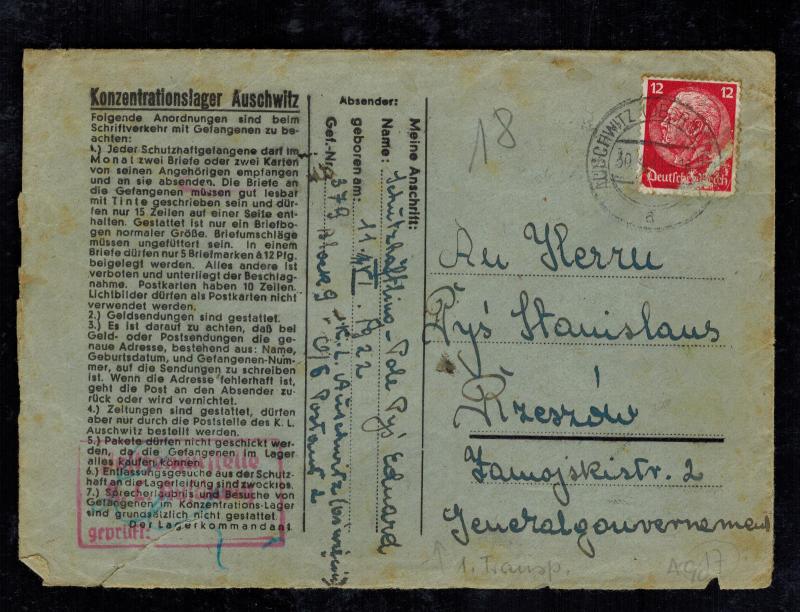 Konzentrationslager Auschwitz
Folgende Anordnungen sind beim
Schriftverkehr mit Gefangenen zu be-
achten:
1.) Jeder Schutzhaftgefangene darf im
Monat zwei Briefe oder zwei Karten
von seinen Angehörigen empfangen
und an sie absenden. Die Briefe an
die Gefangenen müssen gut lesbar
mit Tinte geschrieben sein und dür-
fen nur 15 Zeilen auf einer Seite ent-
halten. Gestattet ist nur ein Briefbo-
gen normaler Größe. Briefumschläge
müssen ungefüttert sein. In einem
Briefe dürfen nur 5 Briefmarken à 12 Pfg.
beigelegt werden. Alles andere ist
verboten und unterliegt der Beschlag-
nahme. Postkarten haben 10 Zeilen.
Lichtbilder dürfen als Postkarten nicht
verwendet werden.
2.) Geldsendungen sind gestattet.
3.) Es ist darauf zu achten, daß bei
Geld- oder Postsendungen die ge-
naue Adresse, bestehend aus: Name,
Geburtsdatum, und Gefangenen-Num-
mer, auf die Sendungen zu schreiben
ist. Wenn die Adresse fehlerhaft ist,
geht die Post an den Absender zu-
rück oder wird vernichtet.
4.) Zeitungen sind gestattet, dürfen
aber nur durch die Poststelle des K. L.
Auschwitz bestellt werden.
5.) Pakete dürfen nicht geschickt wer-
den, da die Gefangenen im Lager
alles kaufen können.
6.) Entlassungsgesuche aus der Schutz-
haft an die Lagerleitung sind zwecklos.
7.) Sprecherlaubnis und Besuche von
Gefangenen im Konzentrations-Lager
sind grundsätzlich nicht gestattet.
Der Lagerkommandant
geprüft:
Absender:
Meine Anschrift:
Schutzhäftling - Pole Pyś Eduard
Name:
geboren am: 11. 1922
Gef.-Nr. 379 Block 9 - K. L. Auschwitz
Postamt 2
18
12 12
Deutsches Reich
AUSCHWITZ
a
An Herrn
Pyś Stanislaus
Rzeszów
Zamojskistr. 2
Generalgouvernement
1. Transp.